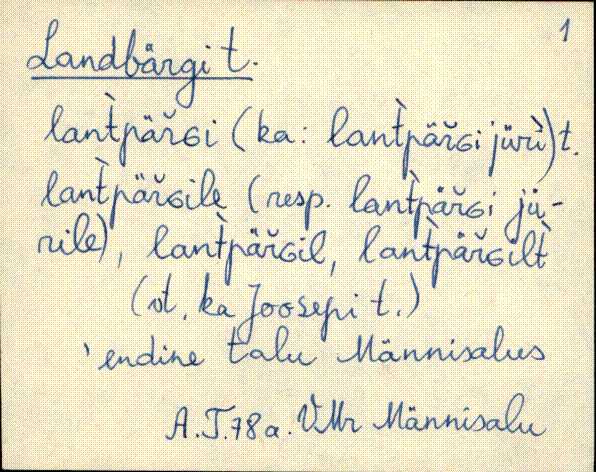 1
Landbärgi t.
lant̀pär̆ɢi (ka: lant̀pär̆ɢi jürì̮) t.
lant̀pär̆ɢile (resp. lant̀pär̆ɢi jü-
rile), lant̀pär̆ɢil, lant̀pär̆ɢilt̀
(vt. ka Joosepi t.)
'endine talu Männisalus
A.T. 78 a. VMr Männisalu